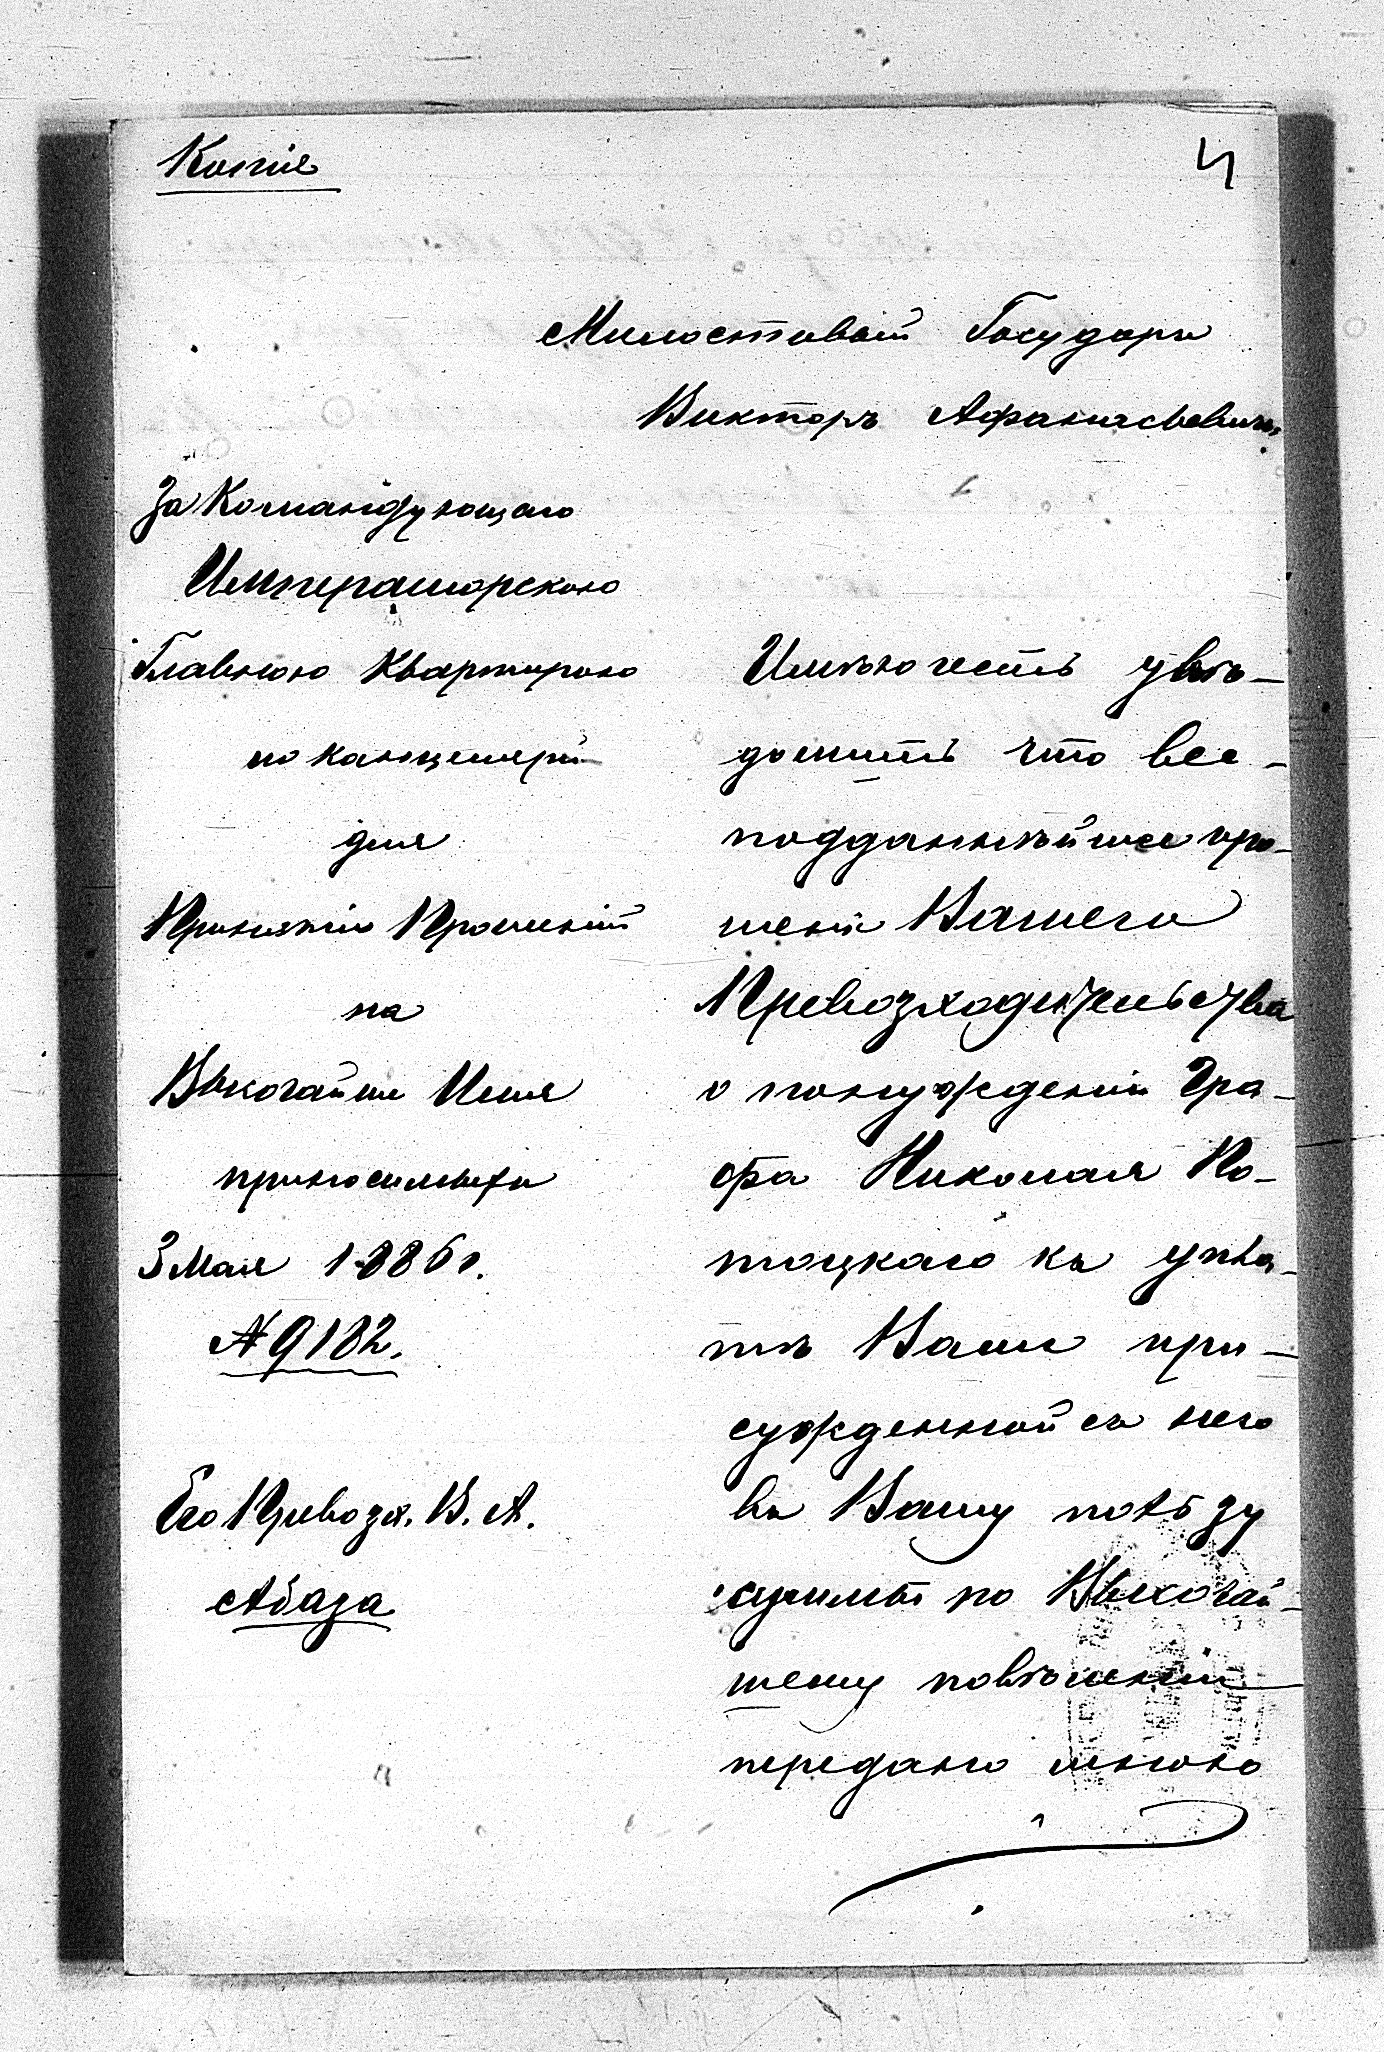 Копія
4
Милостивый Государь
Викторъ Афанасьевичъ,
За Командующаго
Императорскою
Главною Квартирою
по канцеляріи
для
Принятія Прошеній
на
Высочайшее Имя
приносимыхъ
3 Мая 1886 г.
№ 9182.
Его Превозх. В. А.
Абаза
Имѣю честь увѣ-
домить что все-
подданнѣйшее про-
шеніе Вашего
Превозходительства
о понужденіи Гра-
фа Николая По-
тоцкаго къ упла-
тѣ Вами при-
сужденной съ него
въ Вашу пользу
суммы по Высочай-
шему повѣленію
передано мною